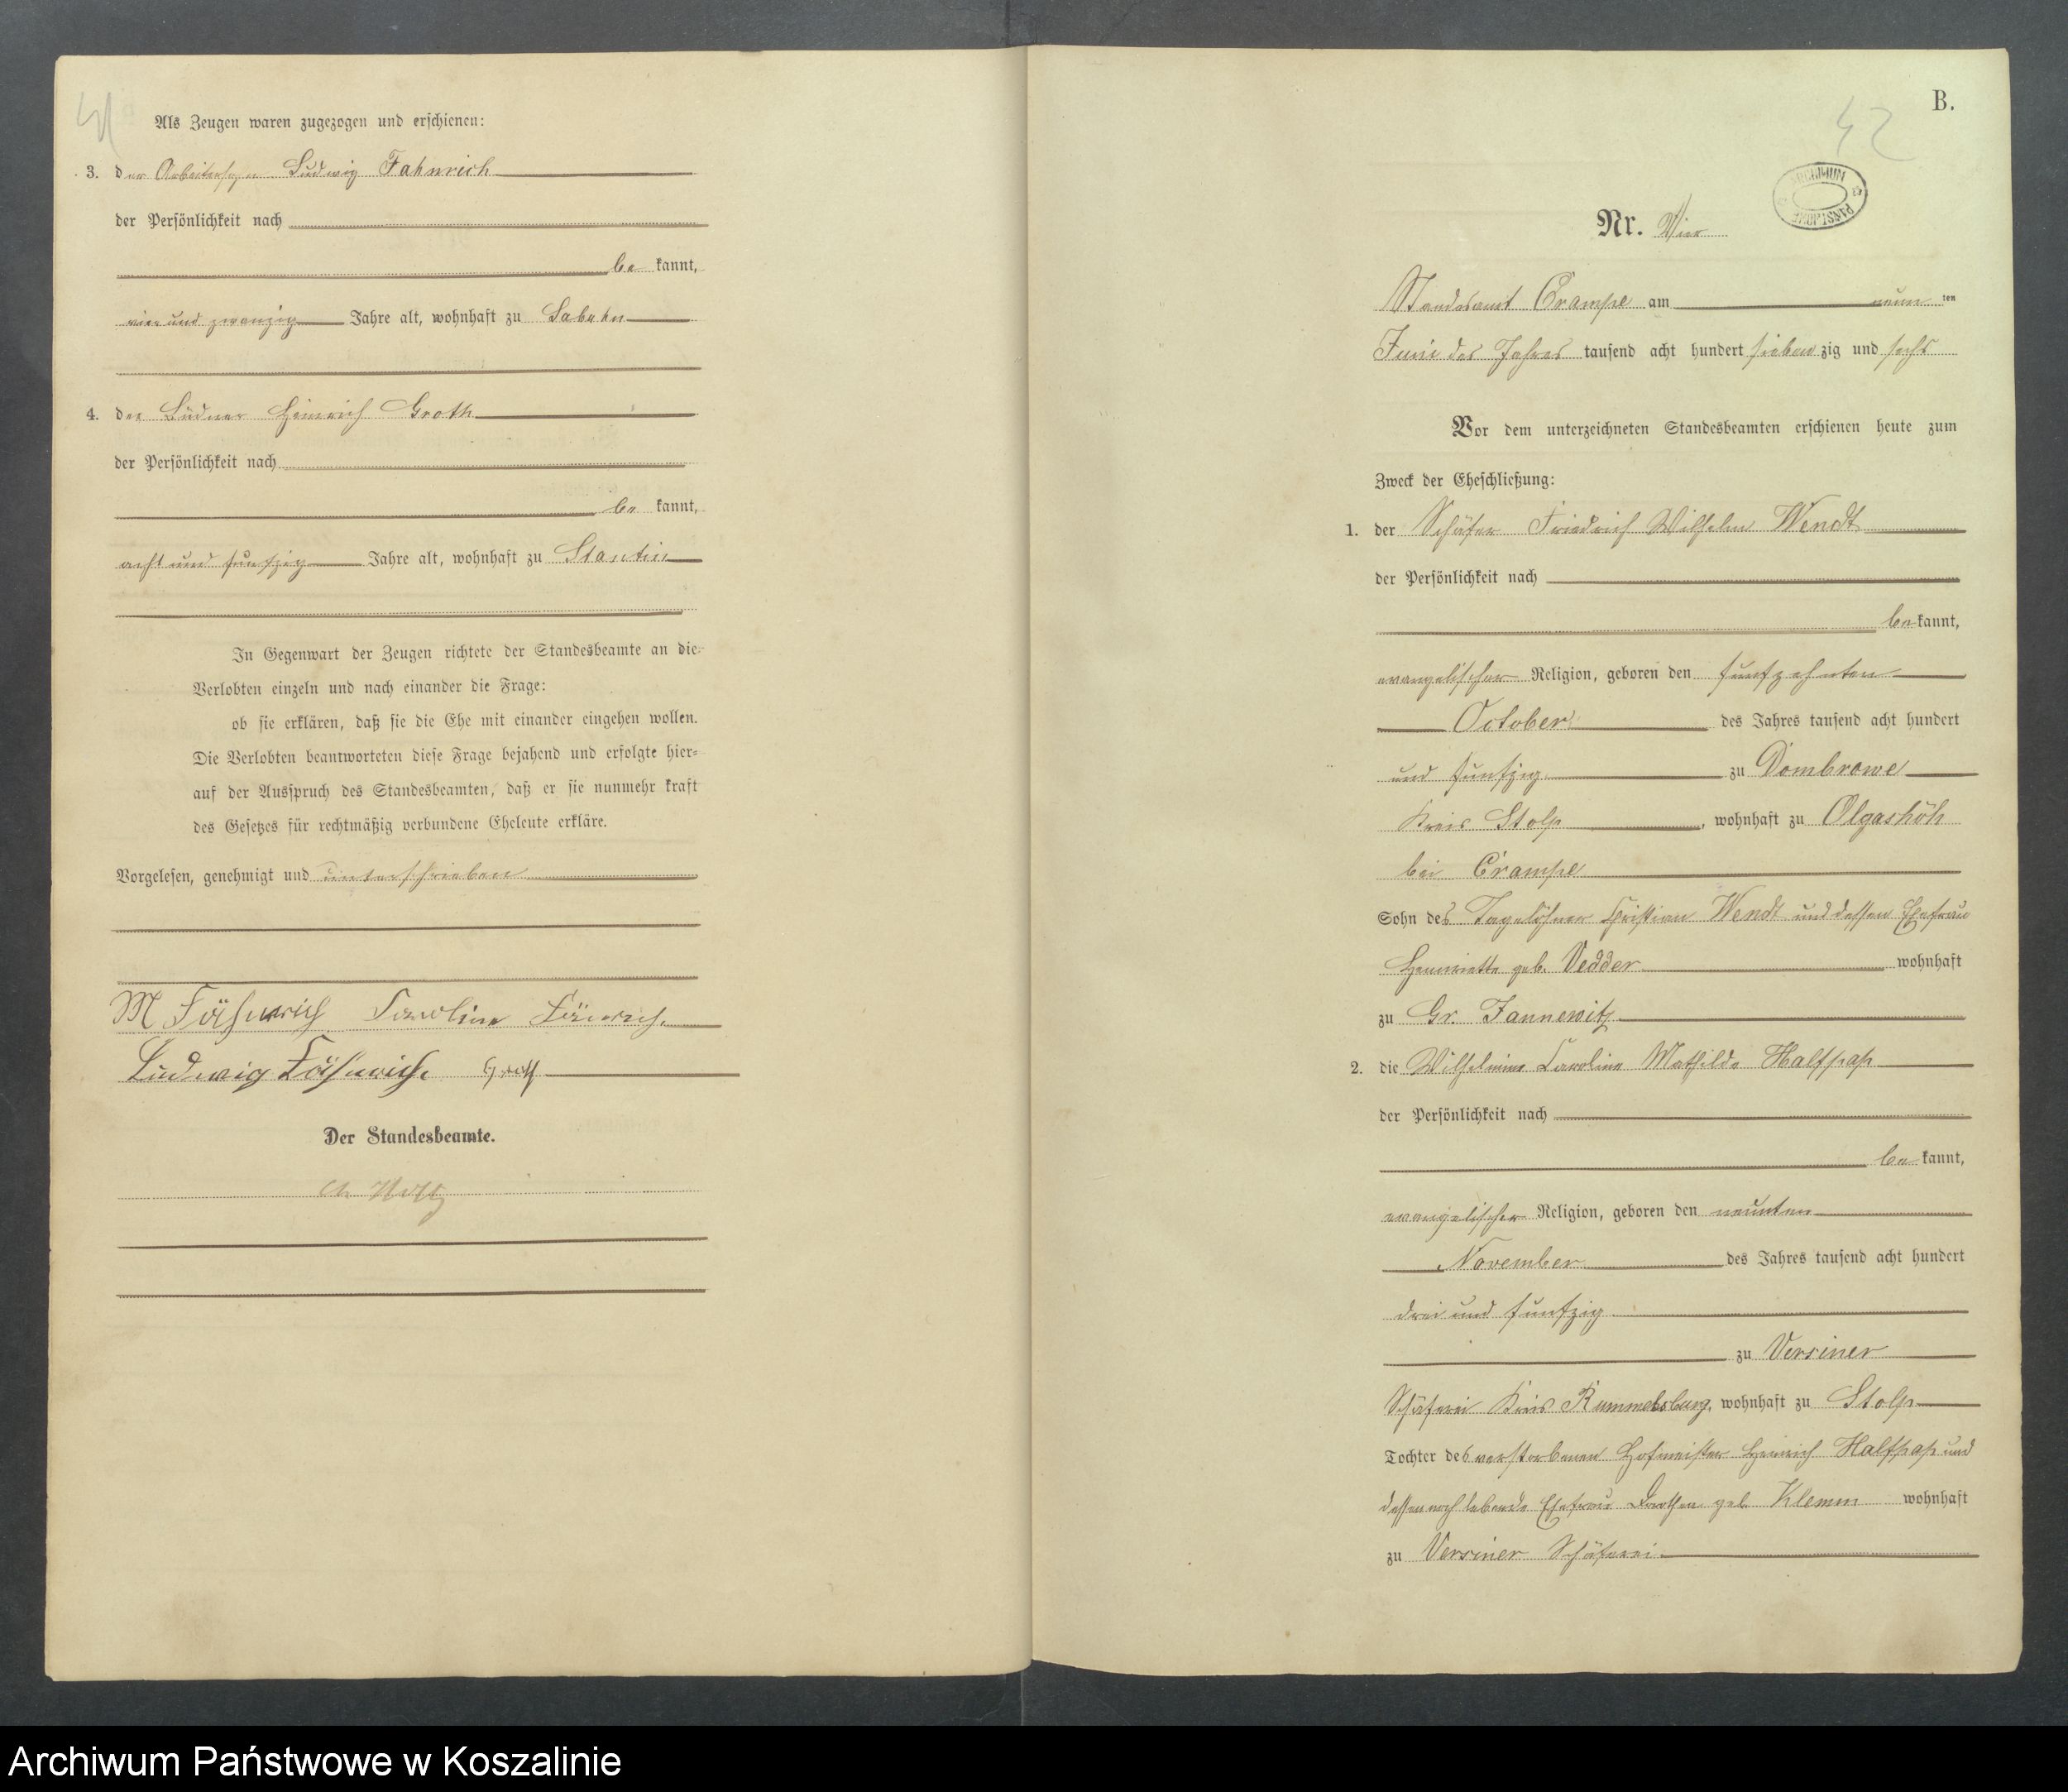 41
Als Zeugen waren zugezogen und erschienen:
3. der Arbeitersohn Ludwig Fahnrich
der Persönlichkeit nach
be kannt,
vier und zwanzig Jahre alt, wohnhaft zu Labuhn
4. der Büdner Heinrich Groth
der Persönlichkeit nach
be kannt,
acht und funfzig Jahre alt, wohnhaft zu Stantin
In Gegenwart der Zeugen richtete der Standesbeamte an die
Verlobten einzeln und nach einander die Frage:
ob sie erklären, daß sie die Ehe mit einander eingehen wollen.
Die Verlobten beantworteten diese Frage bejahend und erfolgte hier=
auf der Ausspruch des Standesbeamten, daß er sie nunmehr kraft
des Gesetzes für rechtmäßig verbundene Eheleute erkläre.
Vorgelesen, genehmigt und unterschrieben
M Fähnrich Caroline
Ludwig Fähnrich Groth
Der Standesbeamte.
B.
42
ARCHIWUM PAŃSTWOWE
Nr. Vier
Standesamt Crampe am neun ten
Juni des Jahres tausend acht hundert sieben zig und sechs
Vor dem unterzeichneten Standesbeamten erschienen heute zum
Zweck der Eheschließung:
1. der Schäfer Friedrich Wilhelm Wendt
der Persönlichkeit nach
be kannt,
evangelischer Religion, geboren den funfzehnten
October des Jahres tausend acht hundert
und funfzig zu Dombrowe
Kreis Stolp, wohnhaft zu Olgashöh
bei Crampe
Sohn des Tagelöhner Christian Wendt und dessen Ehefrau
Henriette geb. Vedder wohnhaft
zu Gr. Jannewitz
2. die Wilhelmine Caroline Mathilde Halfpap
der Persönlichkeit nach
be kannt,
evangelischer Religion, geboren den neunten
November des Jahres tausend acht hundert
drei und funfzig
zu Versiner
Schäferei Kreis Rummelsburg, wohnhaft zu Stolp
Tochter des verstorbenen Hofmeister Heinrich Halfpap und
dessen noch lebende Ehefrau Dorothea geb Klemm wohnhaft
zu Versiner Schäferei
Archiwum Państwowe w Koszalinie